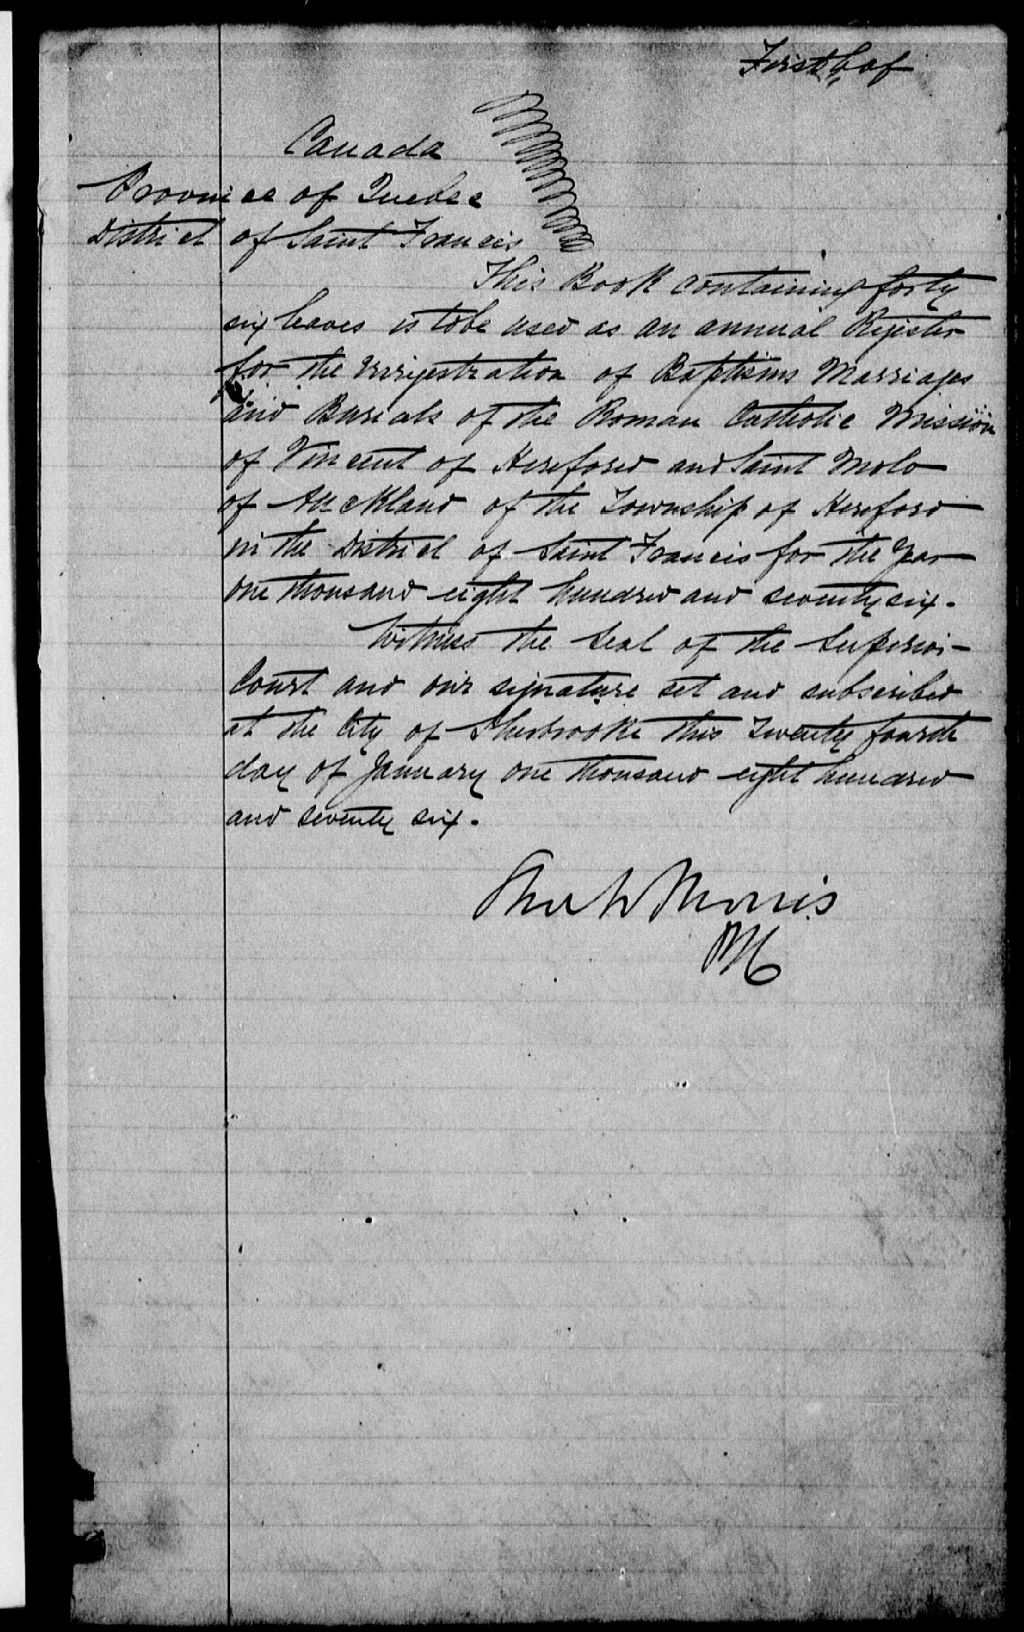 First Leaf
Canada
Province of Quebec
District of Saint Francis
This Book containing forty
six leaves is to be used as an annual Register
for the of Baptisms Marriages
and Burials of the Roman Catholic Mission
of Vincent of Hereford and Saint Malo
of Auckland of the Township of Hereford
in the District of Saint Francis for the Year
one thousand eight hundred and seventy six.
Witness the Seal of the Superior
Court and our signature set and subscribed
at the City of Sherbrooke this Twenty fourth
day of January one thousand eight hundred
and seventy six.
Morris